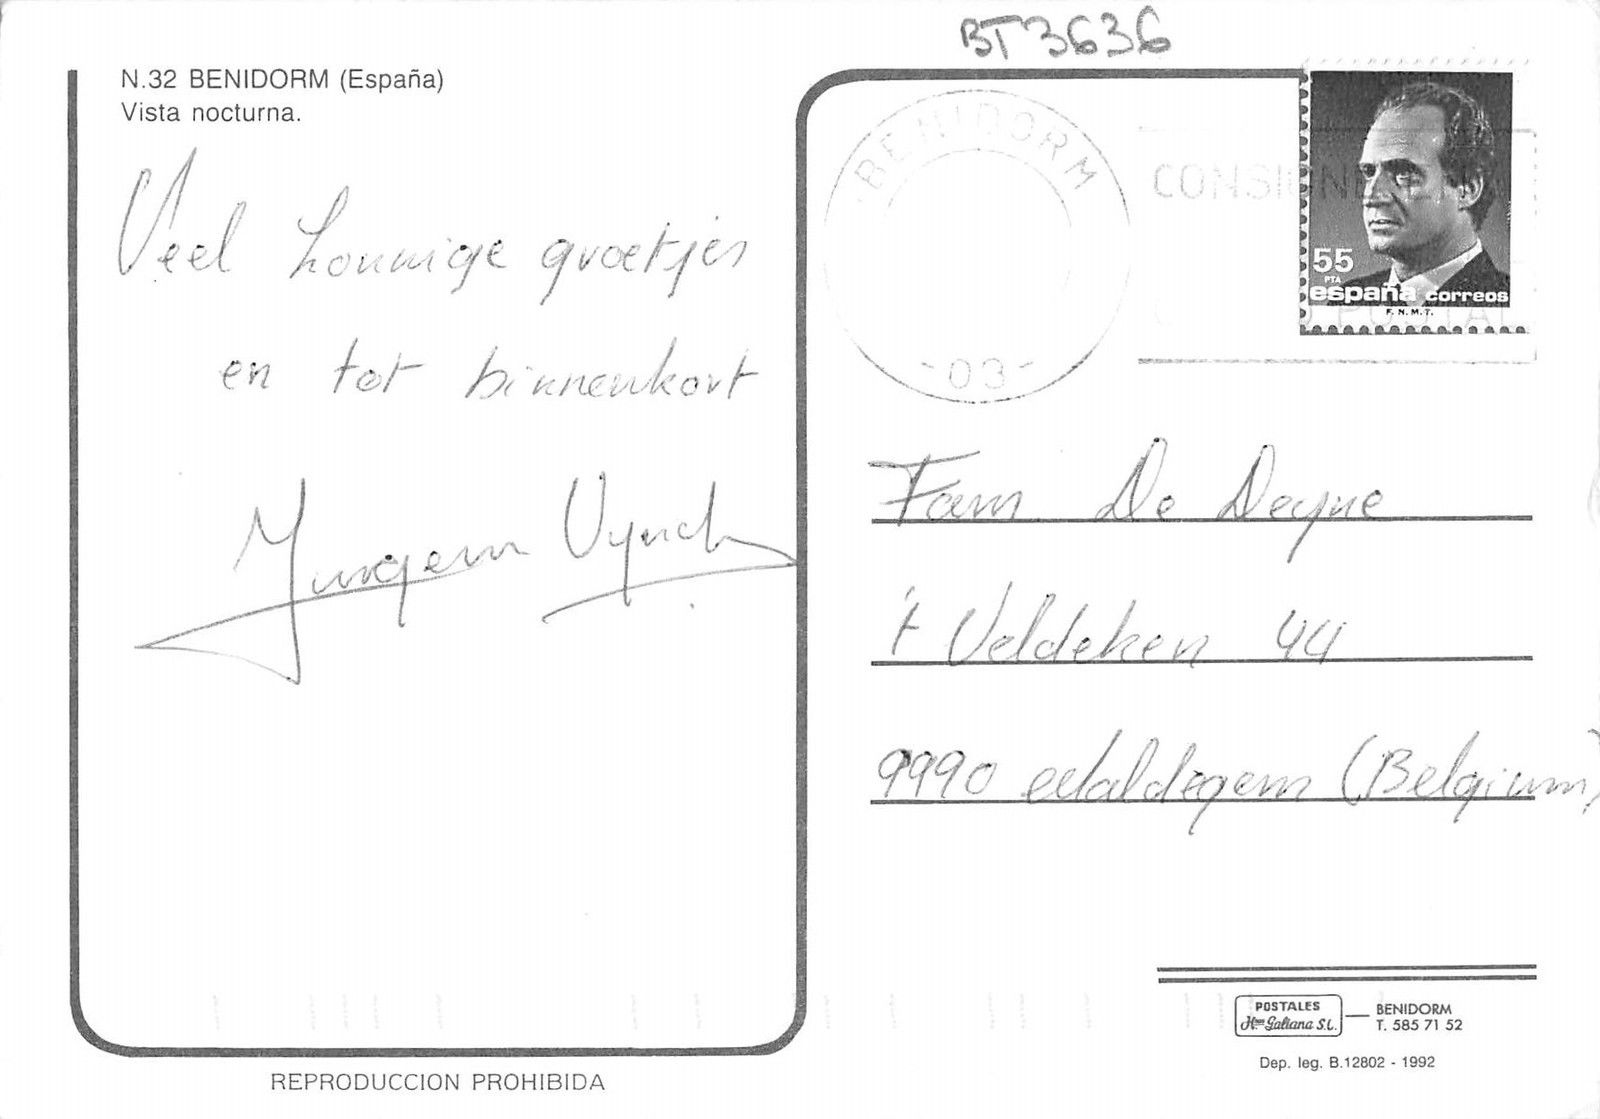 BT3636
N.32 BENIDORM (España)
Vista nocturna.
Veel honnige groetjes
en tot binnenkort
Jurgen Vynck
BENIDORM
-03-
CONSIGNE EN
POSTAL
55
PTA
españa correos
F.N.M.T.
Fam De Deyne
't Veldeken 44
9990 edaldegem (Belgium)
POSTALES
Hnos Galiana S.L.
BENIDORM
T. 585 71 52
Dep. leg. B.12802 - 1992
REPRODUCCION PROHIBIDA